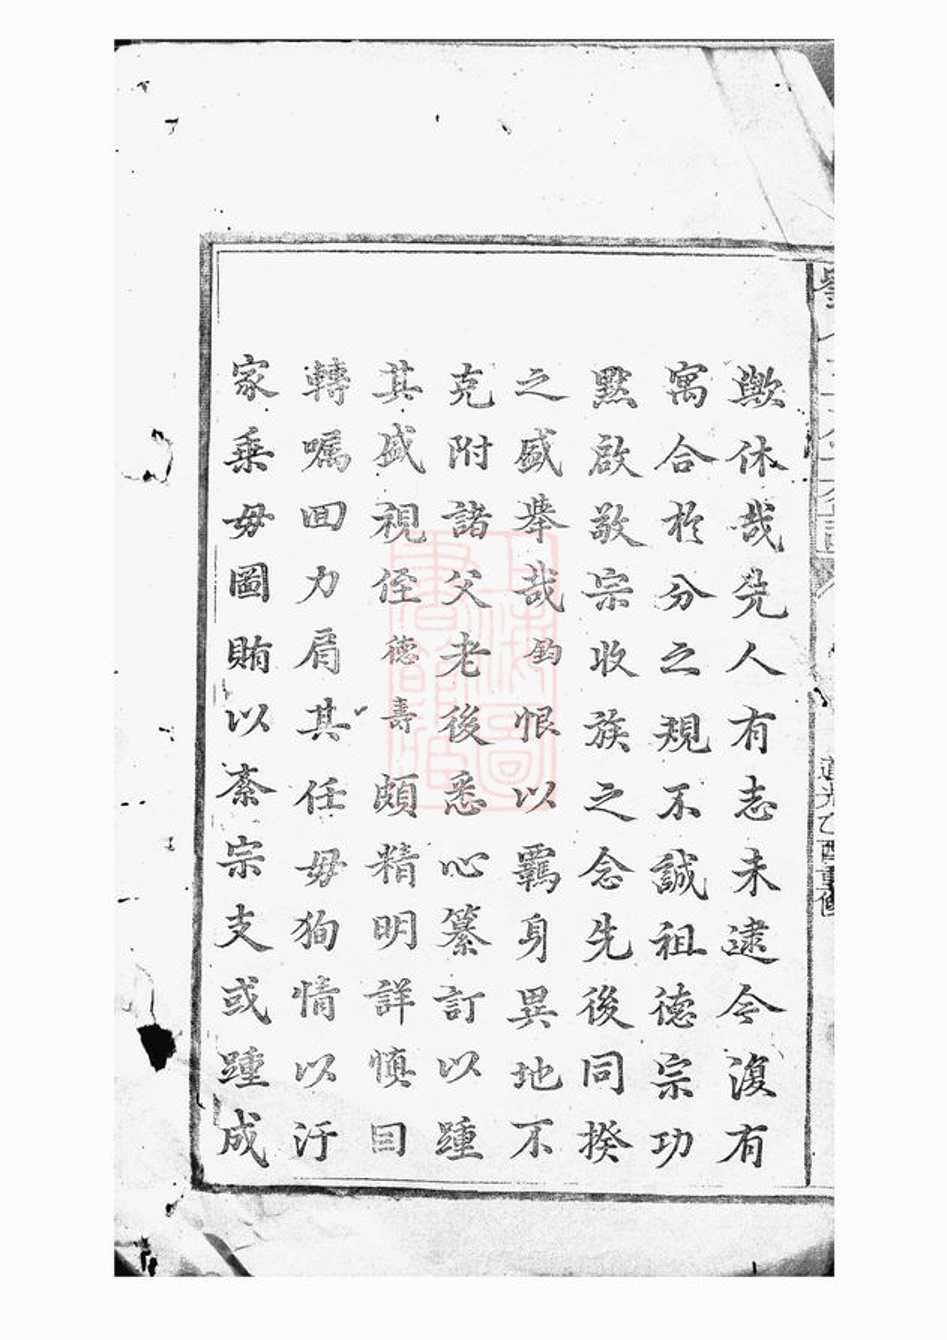 歟休哉先人有志未逮今復有
寓合於分之規不誠祖德宗功
黙啟敬宗收族之念先後同揆
之盛舉哉鈞恨以羈身異地不
克附諸父老後悉心纂訂以踵
其盛視侄德壽頗精明詳慎因
轉囑回力肩其任毋狥情以汙
家乗毋圖賄以紊宗支或踵成
道光乙酉重修